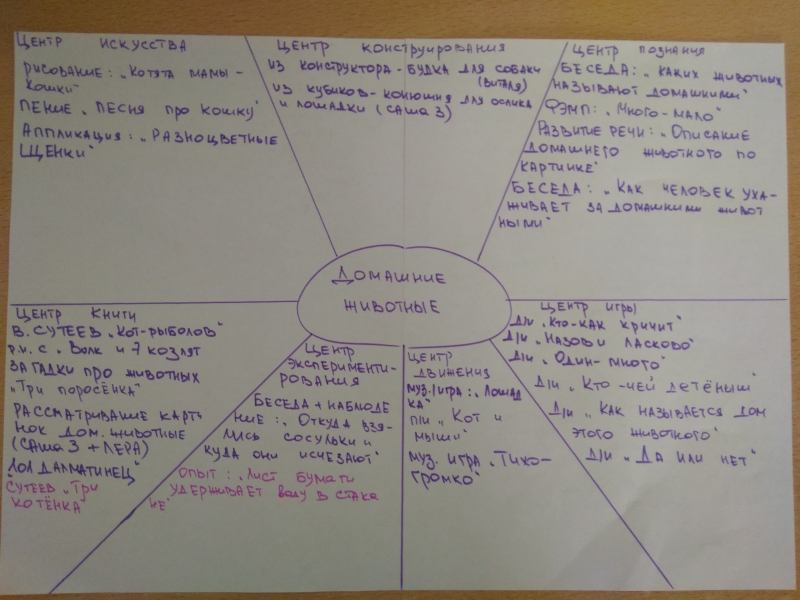 Центр искусства
Рисование: „Котята мамы-
кошки"
Пение „Песня про кошку"
Аппликация: „Разноцветные
щенки"
Центр конструирования
из конструктора - будка для собаки
(Виталя)
из кубиков - конюшня для ослика
и лошадки (Саша З)
Центр познания
Беседа: „Каких животных
называют домашними"
ФЭМП: „Много-мало"
Развитие речи: „Описание
домашнего животного по
картинке"
Беседа: „Как человек уха-
живает за домашними живот
ными"
Домашние
животные
Центр книги
В. Сутеев „Кот-рыболов"
р.н.с. „Волк и 7 козлят
Загадки про животных
„Три поросёнка"
Рассматривание карти
нок дом. животные
(Саша З + Лера)
"Сутеев „Три
котёнка"
Центр
эксперименти-
рования
Беседа + наблюде
ние: „Откуда взя-
лись сосульки и
куда они исчезают"
Опыт: „Лист бумаги
удерживает воду в стака
не"
Центр
движения
Муз./игра: „Лошад
ка"
п/и „Кот и
мыши"
Муз. игра „Тихо-
громко"
Центр игры
Д/и „Кто-как кричит"
Д/и „Назови ласково"
Д/и „Один-много"
Д/и „Кто-чей детёныш"
Д/и „Как называется дом
этого животного"
Д/и „Да или нет"